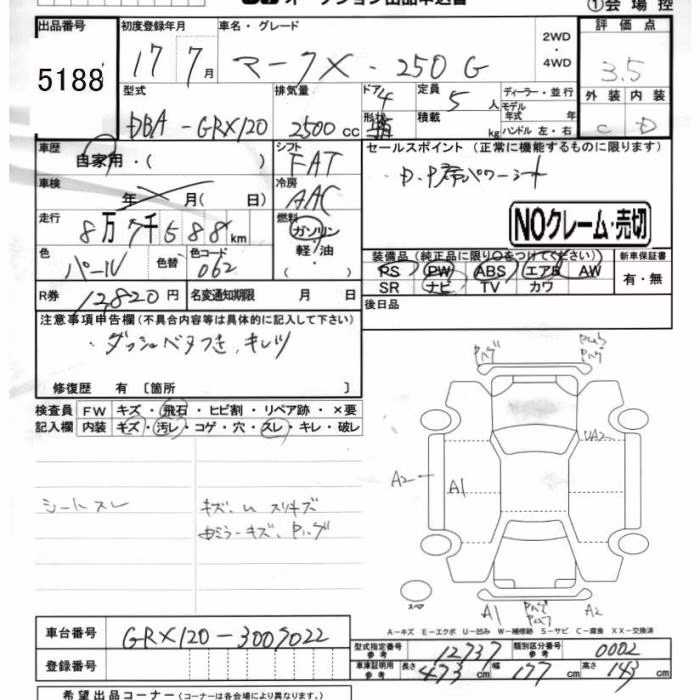 オークション出品申込書
①会場控
出品番号
5188
初度登録年月
17 7月
車名・グレード
マークX・250G
2WD・4WD
評価点
3.5
型式
DBA-GRX120
排気量
2500cc
ドア 4
形状 箱
定員 5人
積載 kg
ディーラー・並行
モデル年式 年式
ハンドル 左・右
外装 内装
C D
車歴
自家用・( )
シフト
FAT
セールスポイント (正常に機能するものに限ります)
・D.P席パワーシート
車検
年 月( 日)
冷房
AAC
走行
8万7千588km
燃料
ガソリン
軽・油
・( )
NOクレーム・売切
色
パール
色替
色コード
062
装備品 (純正品に限り○をつけてください)
新車保証書
PS PW ABS エアB AW
SR ナビ TV カワ
有・無
R券 12820円
名変通知期限 月 日
後日品
注意事項申告欄(不具合内容等は具体的に記入して下さい)
・ダッシュベタつき、キレツ
修復歴 有 〔箇所 〕
検査員 FW キズ・飛石・ヒビ割・リペア跡・×要
記入欄 内装 キズ・汚レ・コゲ・穴・スレ・キレ・破レ
シートスレ
キズ、凹 スリキズ
内ミラーキズ、Pハゲ
Pハゲ
Pムラ
Pハゲ
UA2
A2
A1
スペア
A1
Pハゲ
Pムラ
A2
A-キズ E-エクボ U-凹み W-補修跡 S-サビ C-腐食 XX-交換済
車台番号
GRX120-3007022
登録番号
型式指定番号 参考 12737
類別区分番号 参考 0002
車庫証明用 参考 長さ 473cm 幅 177cm 高さ 143cm
希望出品コーナー (コーナーは各会場により異なります。)